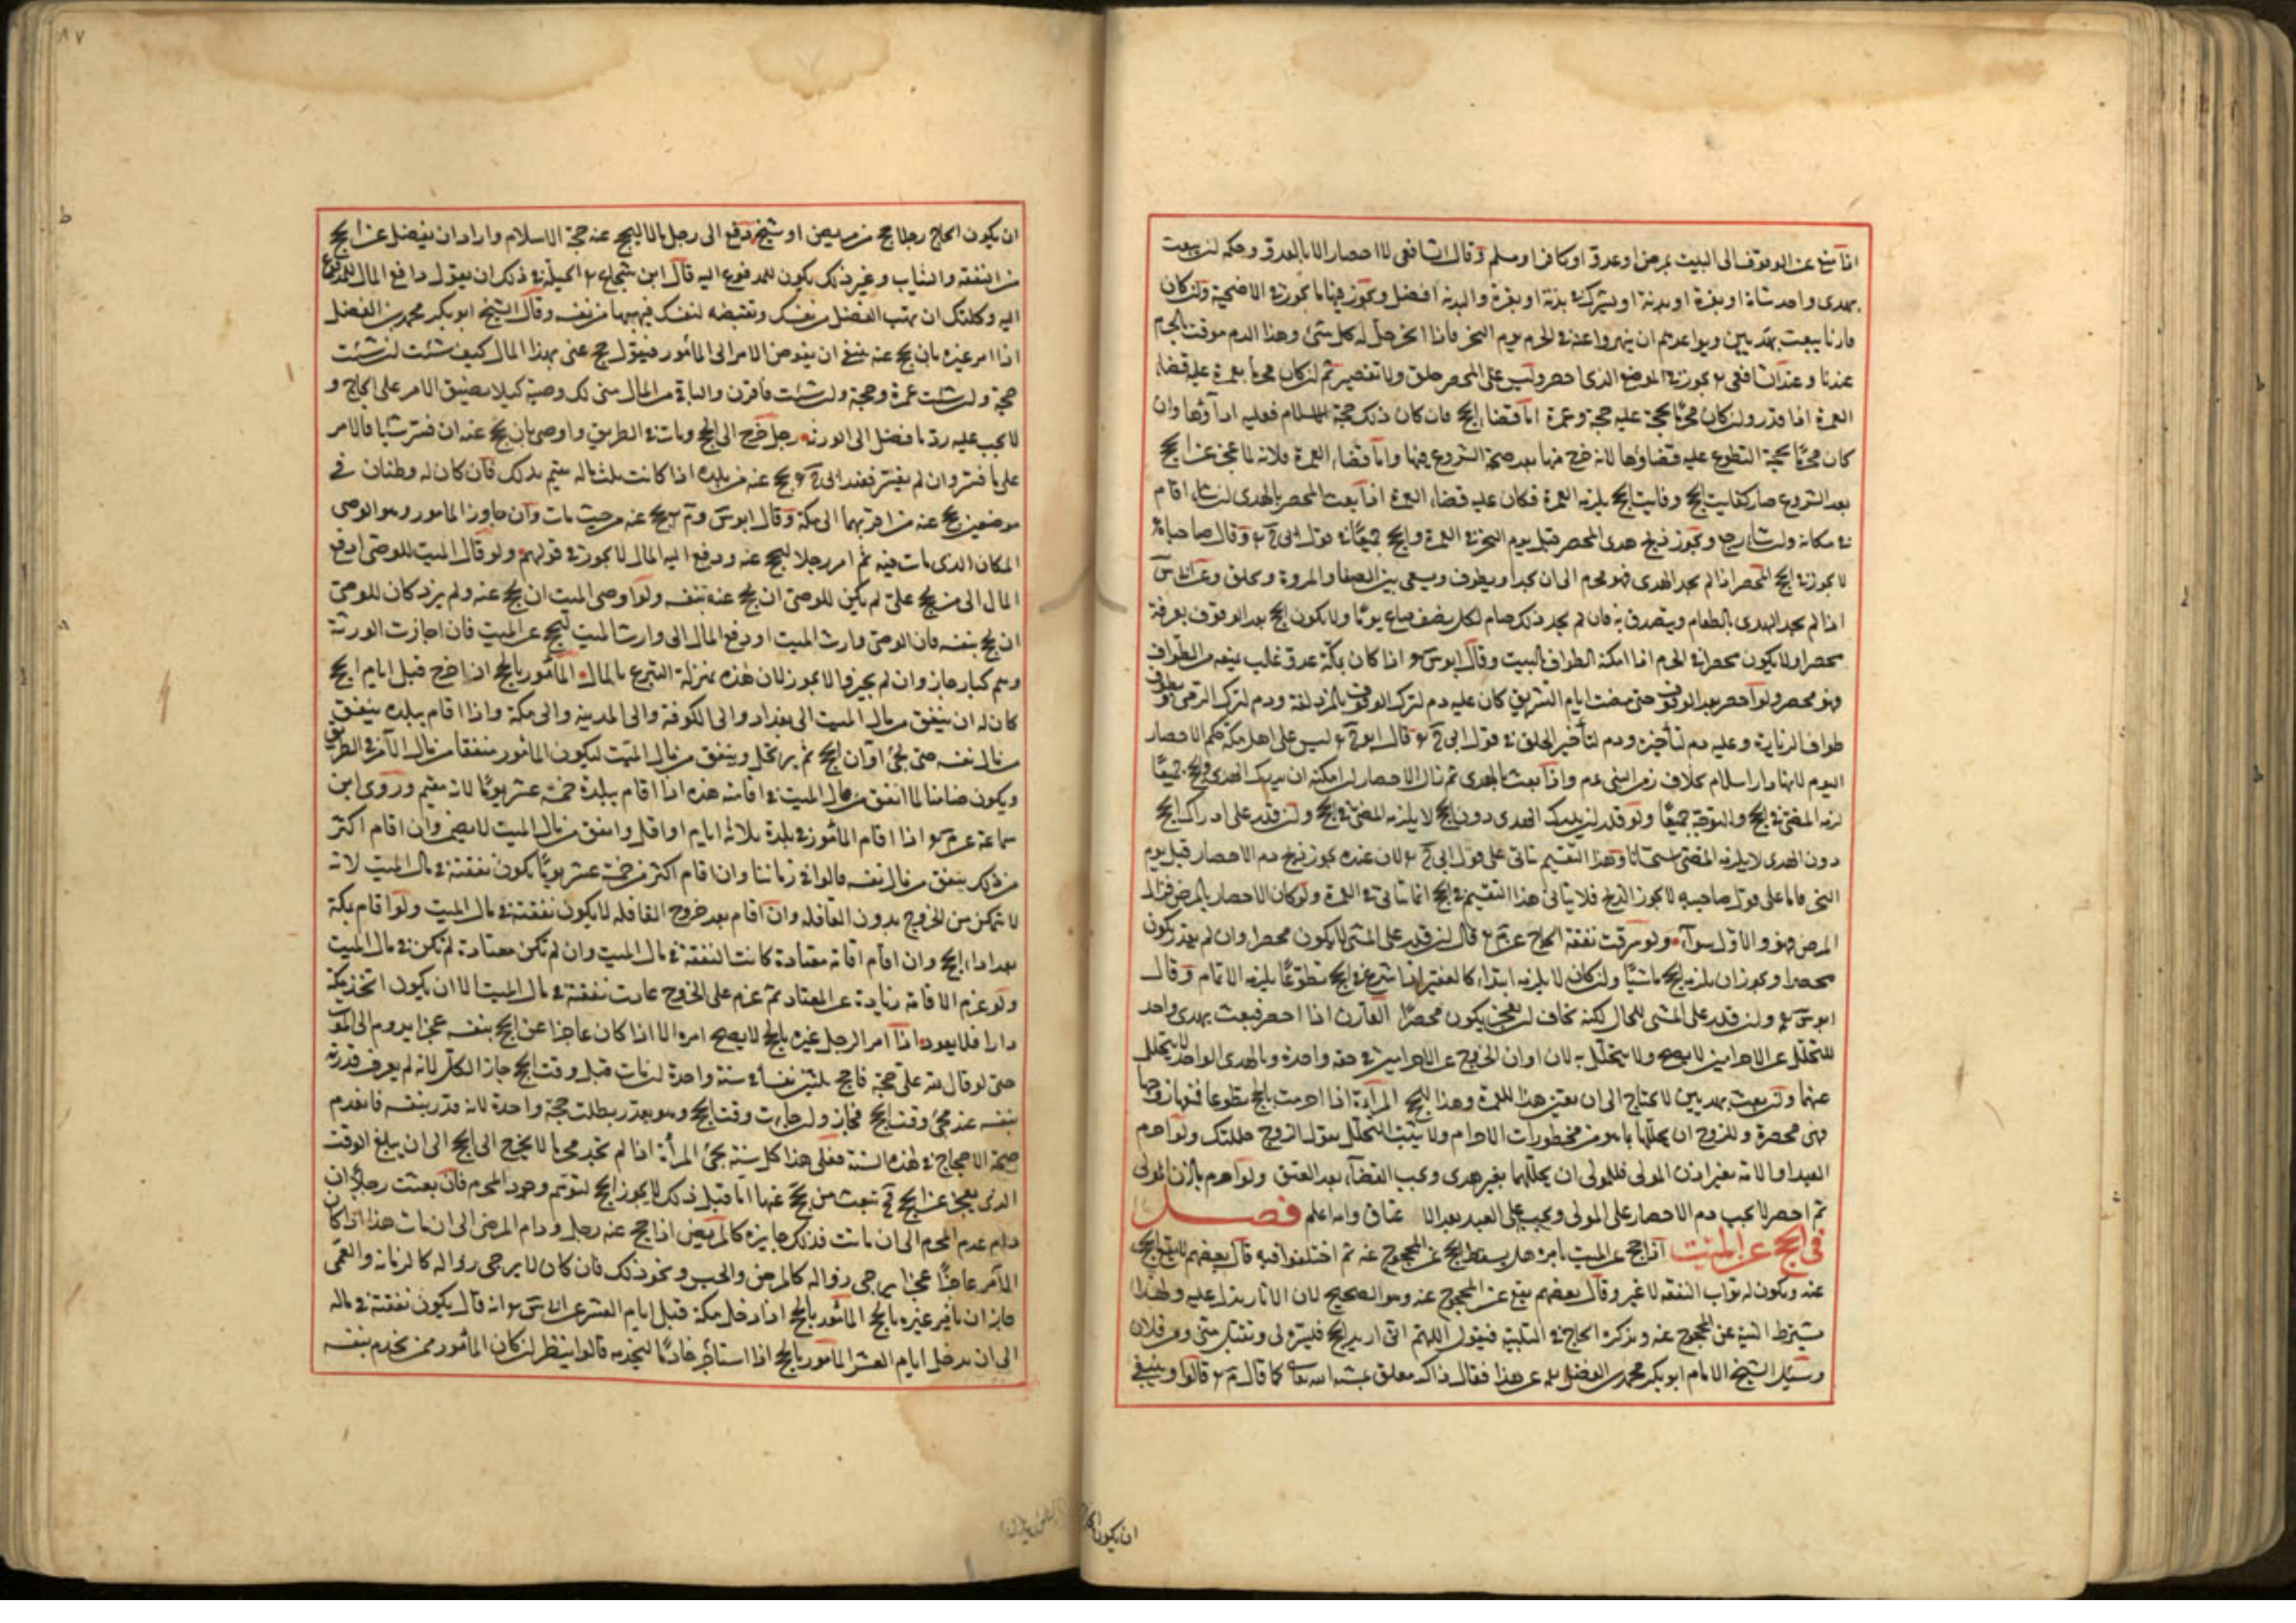 اذا منع عن الوقوف الى البيت بمرض او عدو او كافر او مسلم وقال الشافعى لا احصار الا بالعدو وحكمه ان يبعث
بهدى واحد شاة او بقرة او بدنة او يشترك فى بدنة او بقرة والبدنة افضل ويجوز فيها ما يجوز فى الاضحية وان كان
قارنا يبعث بهديين ويواعدهم ان ينحروا عنه فى الحرم يوم النحر فاذا انحر حل له كل شئ وهذا الدم موقت بالحرم
عندنا وعند الشافعى يجوز فى الموضع الذى احصر وليس على المحصر حلق ولا تقصير ثم ان كان محرما بعمرة عليه قضاء
العمرة اذا قدر وان كان محرما بحجة عليه حجة وعمرة اما قضاء الحج فان كان ذلك حجة الاسلام فعليه اداؤها وان
كان محرما بحجة التطوع عليه قضاؤها لانه خرج منها بعد صحة الشروع فيها واما قضاء العمرة فلانه لما عجز عن الحج
بعد الشروع صار كفايت الحج وفايت الحج يلزمه العمرة فكان عليه قضاء العمرة اذا بعث المحصر بالهدى ان شاء اقام
فى مكانه وان شاء رجع ويجوز ذبح هدى المحصر قبل يوم النحر فى العمرة والحج جميعا فى قول ابى ح وقال صاحباه
لا يجوز فى الحج المحصر اذا لم يجد الهدى فهو محرم الى ان يجد او يطوف ويسعى بين الصفا والمروة ويحلق وعن ابى س
اذا لم يجد الهدى بالطعام ويتصدق به فان لم يجد ذلك صام لكل نصف صاع يوما ولا يكون الحج بعد الوقوف بعرفة
محصرا ولا يكون محصرا فى الحرم اذا امكنه الطواف بالبيت وقال ابو س اذا كان بمكة عدو غالب يمنعه من الطواف
فهو محصر ولو احصر بعد الوقوف حتى مضت ايام التشريق كان عليه دم لترك الوقوف بالمزدلفة ودم لترك الرمى ويطوف
طواف الزيارة وعليه دم لتأخيره ودم لتأخير الحلق فى قول ابى ح قال ابو ح ليس على اهل مكة حكم الاحصار
اليوم لانها دار اسلام بخلاف زمن النبى عم واذا بعث بالهدى ثم زال الاحصار ان امكنه ان يدرك الهدى والحج جميعا
لزمه المضى فى الحج والتوجه جميعا ولو قدر ان يدرك الهدى دون الحج لا يلزمه المضى فى الحج وان قدر على ادراك الحج
دون الهدى لا يلزمه المضى استحسانا وهذا التقسيم يتأتى على قول ابى ح لان عنده يجوز ذبح دم الاحصار قبل يوم
النحر فاما على قول صاحبيه لا يجوز الذبح فلا يتأتى هذا التقسيم فى الحج انما يتأتى فى العمرة ولو كان الاحصار بالمرض فزال
المرض فهو والاول سواء ولو سرقت نفقة الحاج عن م قال ان قدر على المشى لا يكون محصرا وان لم يقدر يكون
محصرا ويجوز ان يلزمه الحج ماشيا وان كان لا يلزمه ابتداء كالفقير اذا شرع فى الحج تطوعا يلزمه الاتمام وقال
ابو س وان قدر على المشى للحال لكنه يخاف ان يعجز يكون محصرا القارن اذا احصر فبعث بهدى واحد
للتحلل عن الاحرامين لا يصح ولا يتحلل به لان اوان الخروج عن الاحرامين فى حقه واحدة وبالهدى الواحد لا يتحلل
عنهما ولو بعث بهديين لا يحتاج الى ان يعين هذا للعمرة وهذا للحج المرأة اذا احرمت بالحج تطوعا فنهاها زوجها
فهى محصرة وللزوج ان يحللها بما هو من محظورات الاحرام ولا يثبت التحلل بقول الزوج حللتك ولو احرم
العبد او الامة بغير اذن المولى فللمولى ان يحللهما بغير هدى ويجب القضاء بعد العتق ولو احرم باذن المولى
ثم احصر لا يجب دم الاحصار على المولى ويجب على العبد بعد الاعتاق والله اعلم فصل
فى الحج عن الميت اذا حج عن الميت بامره هل يسقط الحج عن المحجوج عنه ثم اختلفوا فيه قال بعضهم لا يقع الحج
عنه ويكون له ثواب النفقة لا غير وقال بعضهم يقع عن المحجوج عنه وهو الصحيح لان الآثار تدل عليه ولهذا
يشترط النية عن المحجوج عنه ويذكره الحاج فى التلبية فيقول اللهم انى اريد الحج فيسره لى وتقبل منى ومن فلان
وسئل الشيخ الامام ابو بكر محمد بن الفضل عن هذا فقال ذاك معلق بمشية الله تعالى كما قال م قالوا وينبغى
ان يكون الحاج
٨٧
ان يكون الحاج رجلا حج من مريض او شيخ دفع الى رجل مالا ليحج عنه حجة الاسلام واراد ان يفضل عن الحج
من النفقة والثياب وغير ذلك يكون للمدفوع اليه قال ابن شجاع الحيلة فى ذلك ان يقول دافع المال للمدفوع
اليه وكلتك ان تهب الفضل من نفسك وتقبضه لنفسك فيهبها من نفسه وقال الشيخ ابو بكر محمد بن الفضل
اذا امر غيره بان يحج عنه ينبغى ان يفوض الامر الى المأمور فيقول حج عنى بهذا المال كيف شئت ان شئت
حجة وان شئت عمرة وحجة وان شئت فاقرن والباقى من المال منى لك وصية كيلا يضيق الامر على الحاج و
لا يجب عليه رد ما فضل الى الورثة رجل خرج الى الحج ومات فى الطريق واوصى بان يحج عنه ان فسر شيئا فالامر
على ما فسر وان لم يفسر فعند ابى ح يحج عنه من بلده اذا كانت ثلث ماله يتم بذلك فان كان له وطنان فى
موضعين يحج عنه من اقربهما الى مكة وقال ابو س و م يحج عنه من حيث مات وان جاوز المأمور وهو الوصى
المكان الذى مات فيه ثم امر رجلا ليحج عنه ودفع اليه المال لا يجوز فى قولهم ولو قال الميت للوصى ادفع
المال الى من يحج عنى لم يكن للوصى ان يحج عنه بنفسه ولو اوصى الميت ان يحج عنه ولم يزد كان للوصى
ان يحج بنفسه فان الوصى وارث الميت او دفع المال الى وارث الميت ليحج عن الميت فان اجازت الورثة
وهم كبار جاز وان لم يجيزوا لا يجوز لان هذه بمنزلة التبرع بالمال المأمور بالحج اذا خرج قبل ايام الحج
كان له ان ينفق من مال الميت الى بغداد والى الكوفة والى المدينة والى مكة واذا اقام ببلده ينفق
من مال نفسه حتى يجئ اوان الحج ثم يرتحل وينفق من مال الميت ليكون المأمور منفقا من مال الآمر فى الطريق
ويكون ضامنا لما انفق من مال الميت فى اقامته هذه اذا اقام ببلدة خمسة عشر يوما لانه مقيم وروى ابن
سماعة عن م اذا اقام المأمور فى بلدة ثلاثة ايام او اقل وانفق من مال الميت لا يضمن وان اقام اكثر
من ذلك ينفق من مال نفسه قالوا فى زماننا وان اقام اكثر من خمسة عشر يوما يكون نفقته فى مال الميت لانه
لا يتمكن من الخروج بدون القافلة وان اقام بعد خروج القافلة لا يكون نفقته فى مال الميت ولو اقام بمكة
بعد اداء الحج وان اقام اقامة معتادة كانت النفقة فى مال الميت وان لم تكن معتادة لم تكن فى مال الميت
ولو عزم الاقامة زيادة عن المعتاد ثم عزم على الخروج عادت نفقته فى مال الميت الا ان يكون اتخذ بمكة
دارا فلا يعود اذا امر الرجل غيره بالحج لا يصح امره الا اذا كان عاجزا عن الحج بنفسه عجزا يدوم الى الموت
حتى لو قال لله على حجة فاحج ثلثين نفسا فى سنة واحدة ان مات قبل وقت الحج جاز الكل لانه لم يعرف قدرته
بنفسه عند مجئ وقت الحج فجاز وان جاءت وقت الحج وهو يقدر بطلت حجة واحدة لانه قدر بنفسه فانعدم
صحة الاحجاج فى هذه السنة فعلى هذا كل سنة يجئ المرأة اذا لم تجد محرما لا يخرج الى الحج الى ان يبلغ الوقت
الذى يعجز عن الحج فح تبعث من يحج عنها اما قبل ذلك لا يجوز الحج لتوهم وجود المحرم فان بعثت رجلا ان
دام عدم المحرم الى ان ماتت فذلك جايزه كالمريض اذا حج عنه رجل ودام المرض الى ان مات هذا اذا كان
الآمر عاجزا عجزا يرجى زواله كالمرض والحبس ونحو ذلك فان كان لا يرجى زواله كالزمانة والعمى
جاز ان يأمر غيره بالحج المأمور بالحج اذا دخل مكة قبل ايام العشر عن ابى س انه قال يكون نفقته فى ماله
الى ان يدخل ايام العشر المأمور بالحج اذا استأجر خادما ليخدمه قالوا ينظر ان كان المأمور ممن يخدم بنفسه